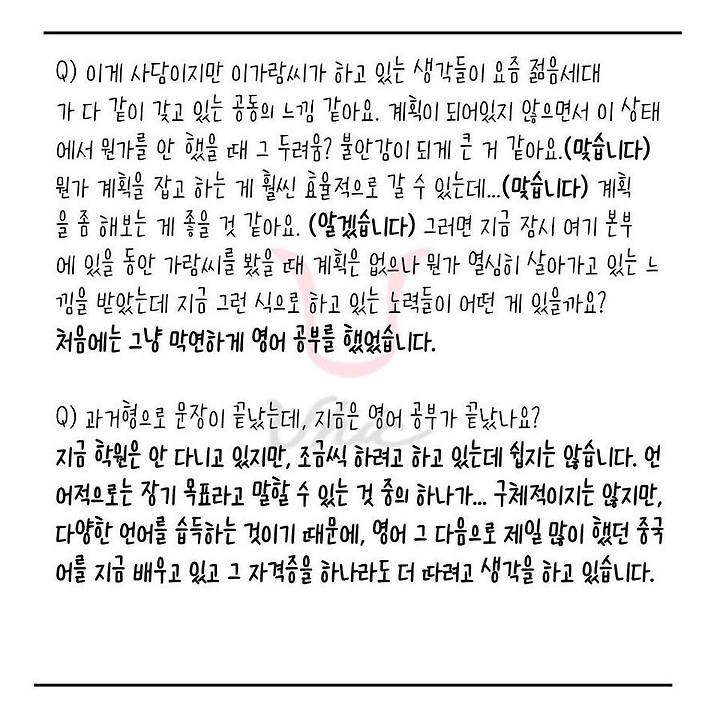 Q) 이게 사담이지만 이가람씨가 하고 있는 생각들이 요즘 젊음세대
가 다 같이 갖고 있는 공동의 느낌 같아요. 계획이 되어있지 않으면서 이 상태
에서 뭔가를 안 했을 때 그 두려움? 불안감이 되게 큰 거 같아요.(맞습니다)
뭔가 계획을 잡고 하는 게 훨씬 효율적으로 갈 수 있는데...(맞습니다) 계획
을 좀 해보는 게 좋을 것 같아요. (알겠습니다) 그러면 지금 잠시 여기 본부
에 있을 동안 가람씨를 봤을 때 계획은 없으나 뭔가 열심히 살아가고 있는 느
낌을 받았는데 지금 그런 식으로 하고 있는 노력들이 어떤 게 있을까요?
처음에는 그냥 막연하게 영어 공부를 했었습니다.
Q) 과거형으로 문장이 끝났는데, 지금은 영어 공부가 끝났나요?
지금 학원은 안 다니고 있지만, 조금씩 하려고 하고 있는데 쉽지는 않습니다. 언
어적으로는 장기 목표라고 말할 수 있는 것 중의 하나가... 구체적이지는 않지만,
다양한 언어를 습득하는 것이기 때문에, 영어 그 다음으로 제일 많이 했던 중국
어를 지금 배우고 있고 그 자격증을 하나라도 더 따려고 생각을 하고 있습니다.